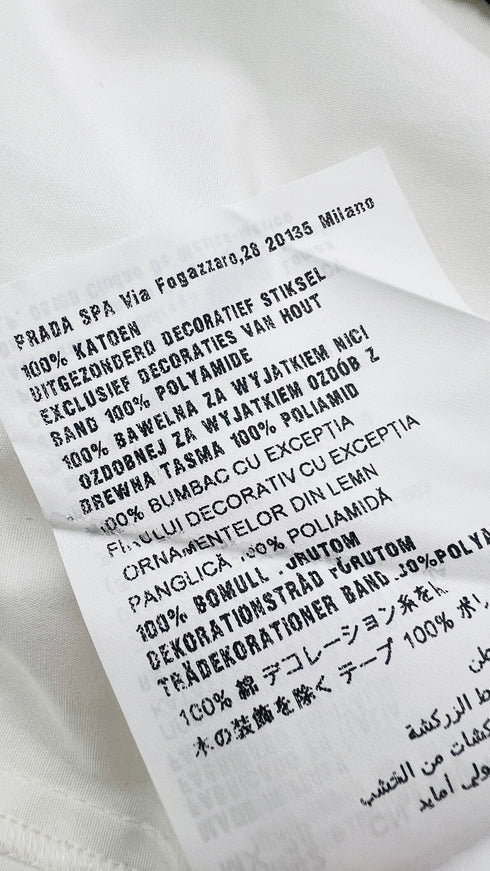 PRADA SPA Via Fogazzaro,28 20135 Milano
100% KATOEN
UITGEZONDERD DECORATIEF STIKSEL
EXCLUSIEF DECORATIES VAN HOUT
BAND 100% POLYAMIDE
100% BAWELNA ZA WYJATKIEM NICI
OZDOBNEJ ZA WYJATKIEM OZDÓB Z
DREWNA TASMA 100% POLIAMID
100% BUMBAC CU EXCEPTIA
FIRULUI DECORATIV CU EXCEPTIA
ORNAMENTELOR DIN LEMN
PANGLICĂ 100% POLIAMIDĂ
100% BOMULL FÖRUTOM
DEKORATIONSTRÅD FÖRUTOM
TRÄDEKORATIONER BAND 100% POLYA
100% 綿 デコレーション糸を
木の装飾を除く テープ 100% ポリ
قطن
الزركشة
من الخشب